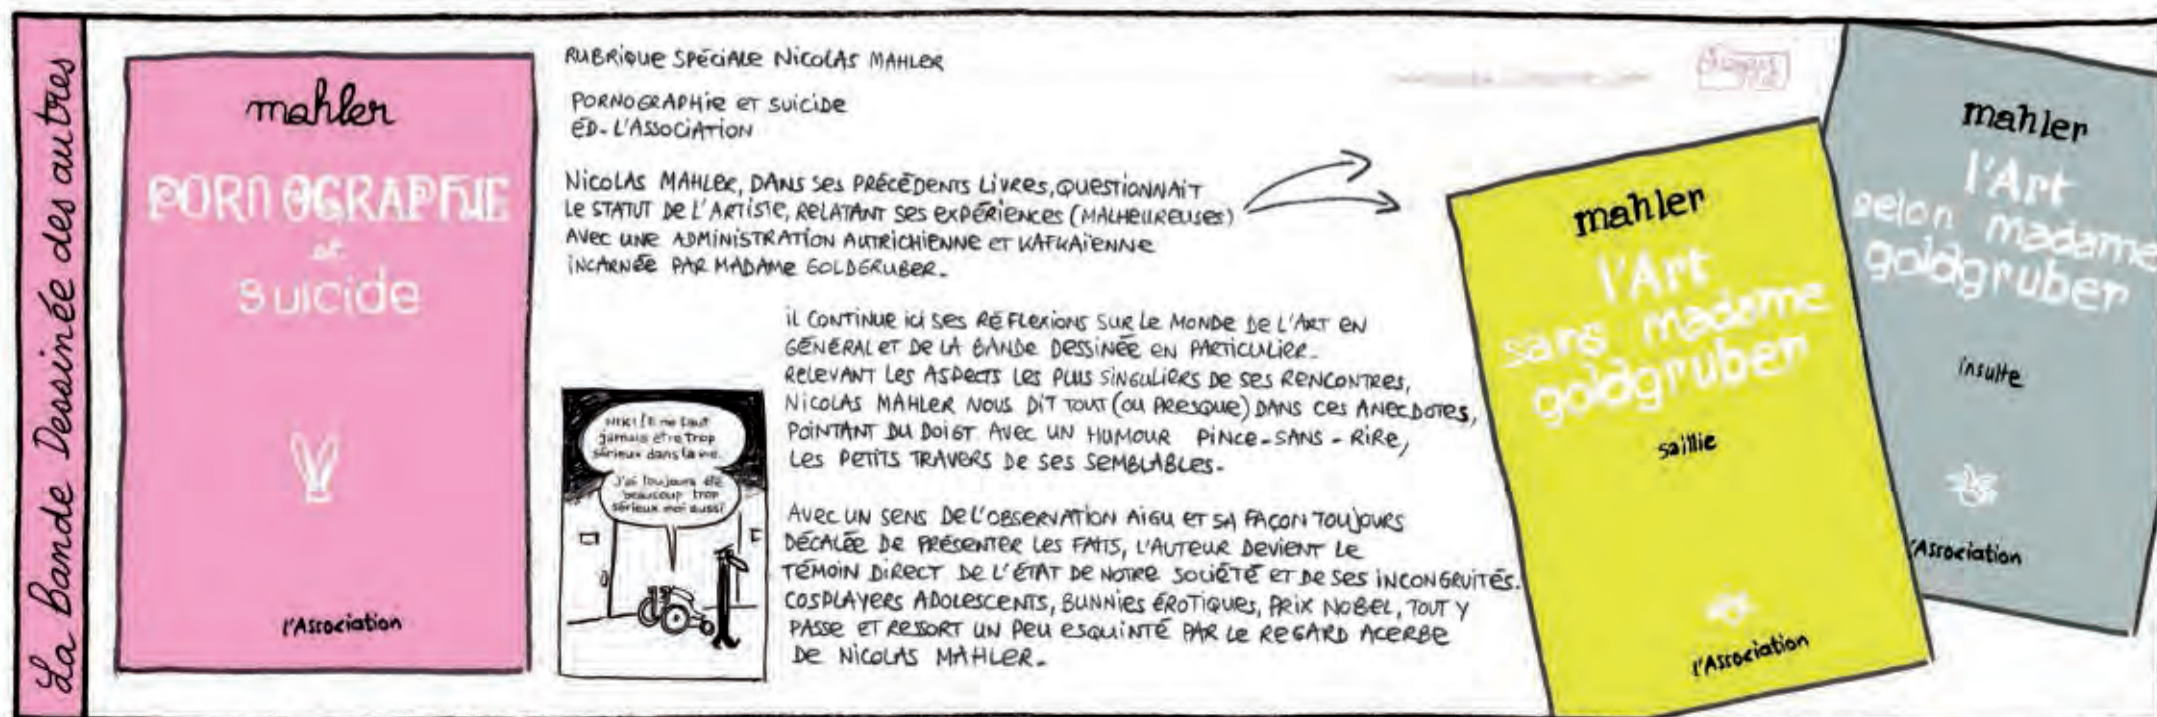 La Bande Dessinée des autres
mahler
PORNOGRAPHIE
et
suicide
l'Association
RUBRIQUE SPÉCIALE NICOLAS MAHLER
PORNOGRAPHIE ET SUICIDE
ÉD. L'ASSOCIATION
NICOLAS MAHLER, DANS SES PRÉCÉDENTS LIVRES, QUESTIONNAIT
LE STATUT DE L'ARTISTE, RELATANT SES EXPÉRIENCES (MALHEUREUSES)
AVEC UNE ADMINISTRATION AUTRICHIENNE ET KAFKAÏENNE
INCARNÉE PAR MADAME GOLDGRUBER.
IL CONTINUE ICI SES RÉFLEXIONS SUR LE MONDE DE L'ART EN
GÉNÉRAL ET DE LA BANDE DESSINÉE EN PARTICULIER.
RELEVANT LES ASPECTS LES PLUS SINGULIERS DE SES RENCONTRES,
NICOLAS MAHLER NOUS DIT TOUT (OU PRESQUE) DANS CES ANECDOTES,
POINTANT DU DOIGT AVEC UN HUMOUR PINCE-SANS-RIRE,
LES PETITS TRAVERS DE SES SEMBLABLES.
AVEC UN SENS DE L'OBSERVATION AIGU ET SA FAÇON TOUJOURS
DÉCALÉE DE PRÉSENTER LES FAITS, L'AUTEUR DEVIENT LE
TÉMOIN DIRECT DE L'ÉTAT DE NOTRE SOCIÉTÉ ET DE SES INCONGRUITÉS.
COSPLAYERS ADOLESCENTS, BUNNIES ÉROTIQUES, PRIX NOBEL, TOUT Y
PASSE ET RESSORT UN PEU ESQUINTÉ PAR LE REGARD ACERBE
DE NICOLAS MAHLER.
ne faut
jamais être trop
sérieux dans la vie.
J'ai toujours été
beaucoup trop
sérieux moi aussi
mahler
l'Art
sans madame
goldgruber
saillie
l'Association
mahler
l'Art
selon madame
goldgruber
insulte
l'Association